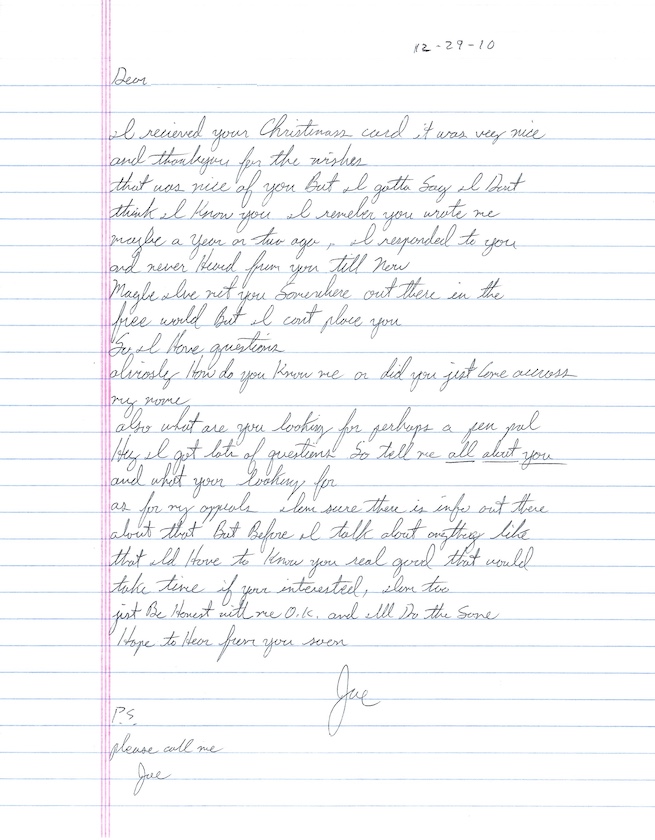 12-29-10
Dear
I recieved your Christmass card it was very nice
and thankyou for the wishes
that was nice of you But I gotta Say I Dont
think I Know you I remeber you wrote me
maybe a Year or two ago, I responded to you
and never Heard from you till Now
Maybe Ive met you Somewhere out there in the
free world But I cant place you
So I Have questions
obviosly How do you Know me or did you just Come accross
my name
also what are you looking for perhaps a pen pal
Hey I got lots of questions So tell me all about you
and what your looking for
as for my appeals Iam sure there is info out there
about that But Before I talk about anything like
that Id Have to Know you real good that would
take time if your interested, Iam too
just Be Honest with me O.K. and Ill Do the Same
Hope to Hear from you soon
Joe
P.S.
please call me
Joe